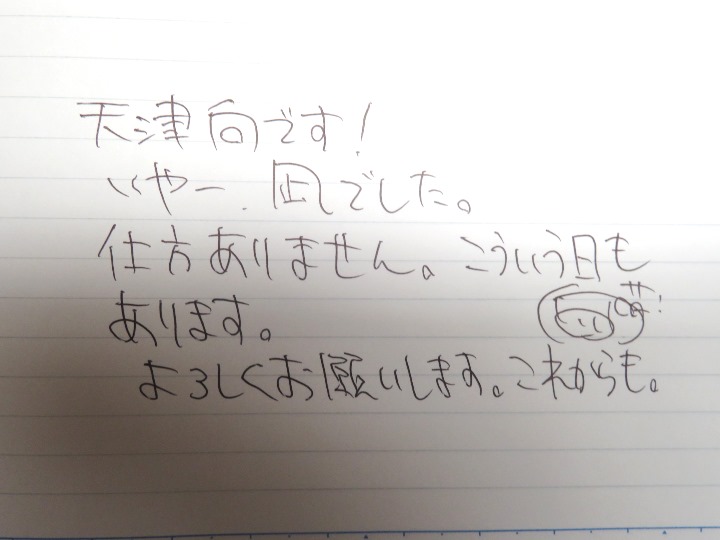 天津向です!
いやー、凪でした。
仕方ありません。こういう日も
あります。
よろしくお願いします。これからも。